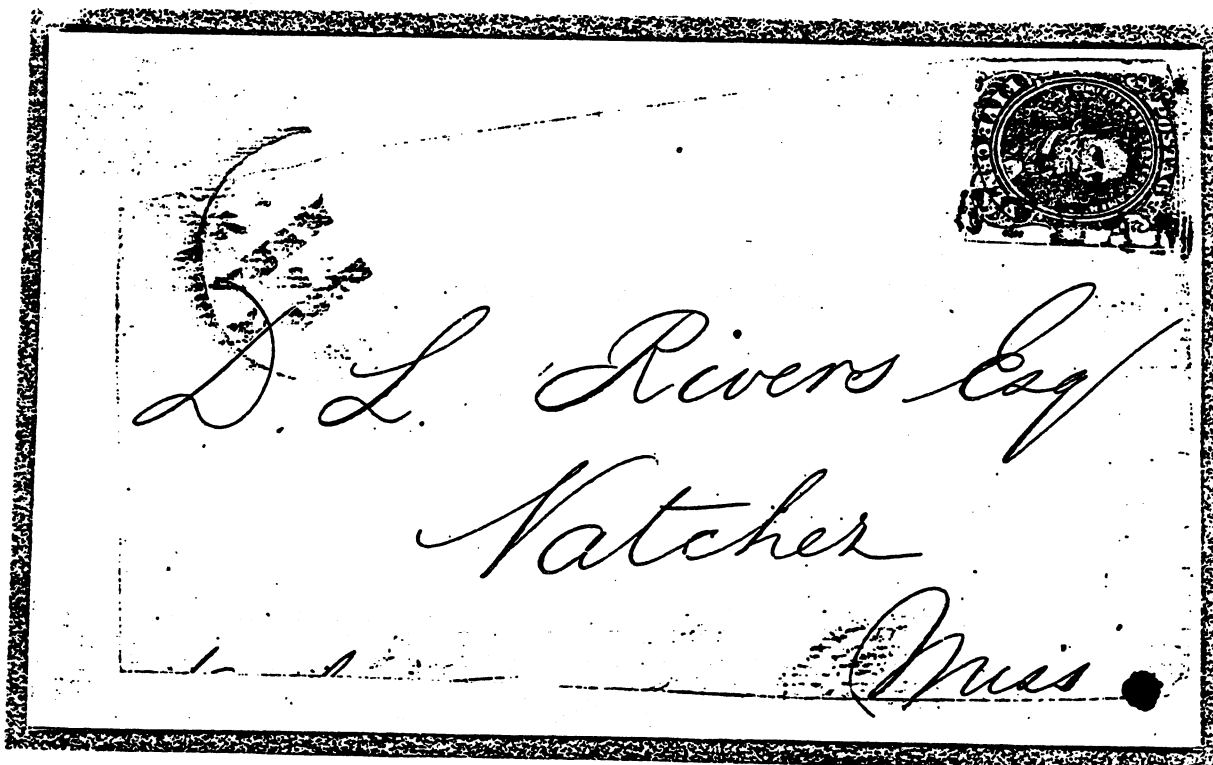 D. L. Rivers Esq
Natchez
Miss